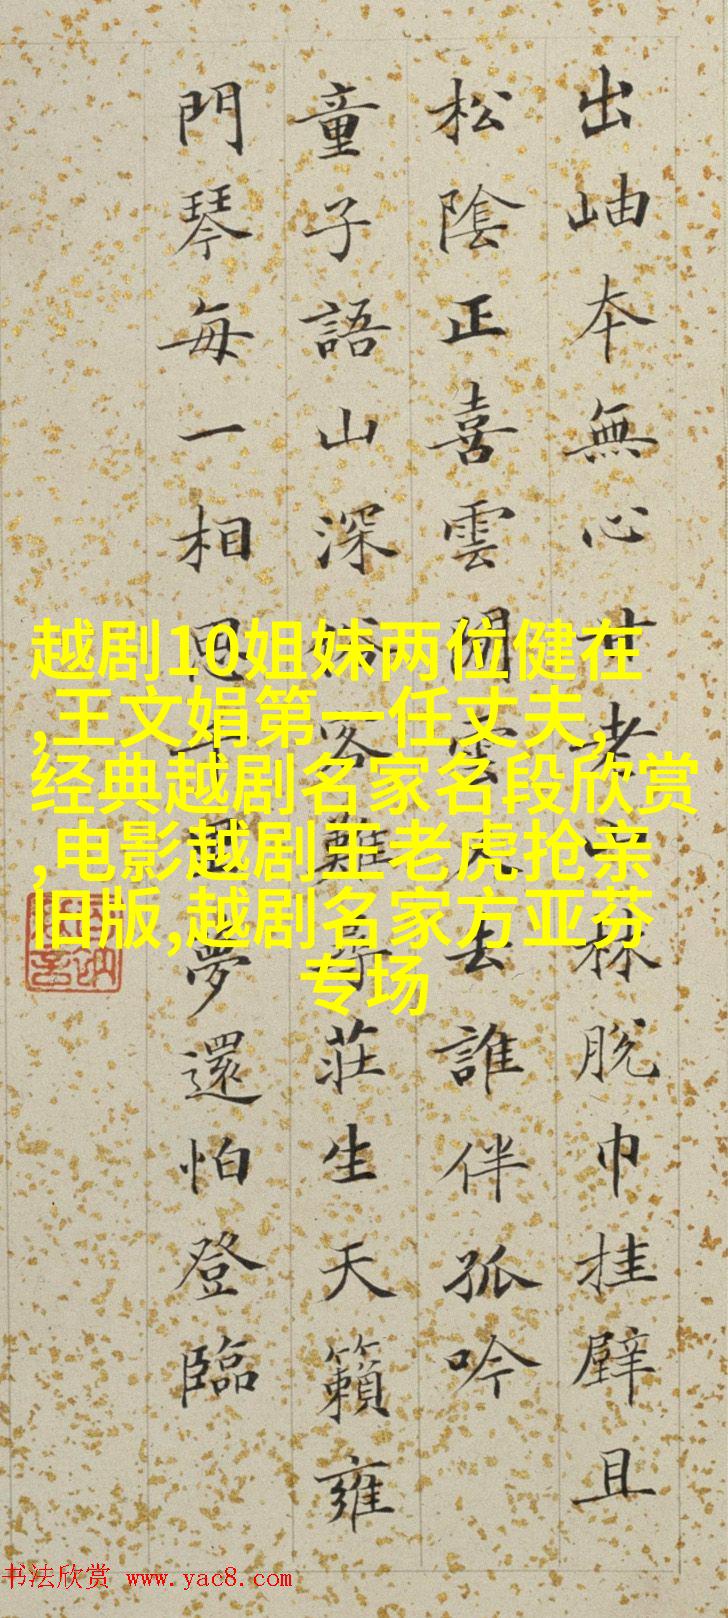 出岫本無心甘老林脫巾挂壁且
松陰正喜雲閒雲去誰伴孤吟
童子語山深客難尋莊生天籟雍
門琴每一相夢還怕登臨
越剧10姐妹两位健在
,王文娟第一任丈夫,
经典越剧名家名段欣赏
,电影越剧王老虎抢亲
旧版,越剧名家方亚芬
专场
书法欣赏 www.yac8.com